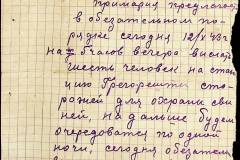 примария предлагает
в обезательном по-
рядке сегодня 12/X 43г
на 7 часов вечера выслать
шесть человек на стан-
цию Грегорешты сто-
рожей для обераны сви-
ней, на дальше будем
очередоваться по одной
ночи, сегодня обезатель